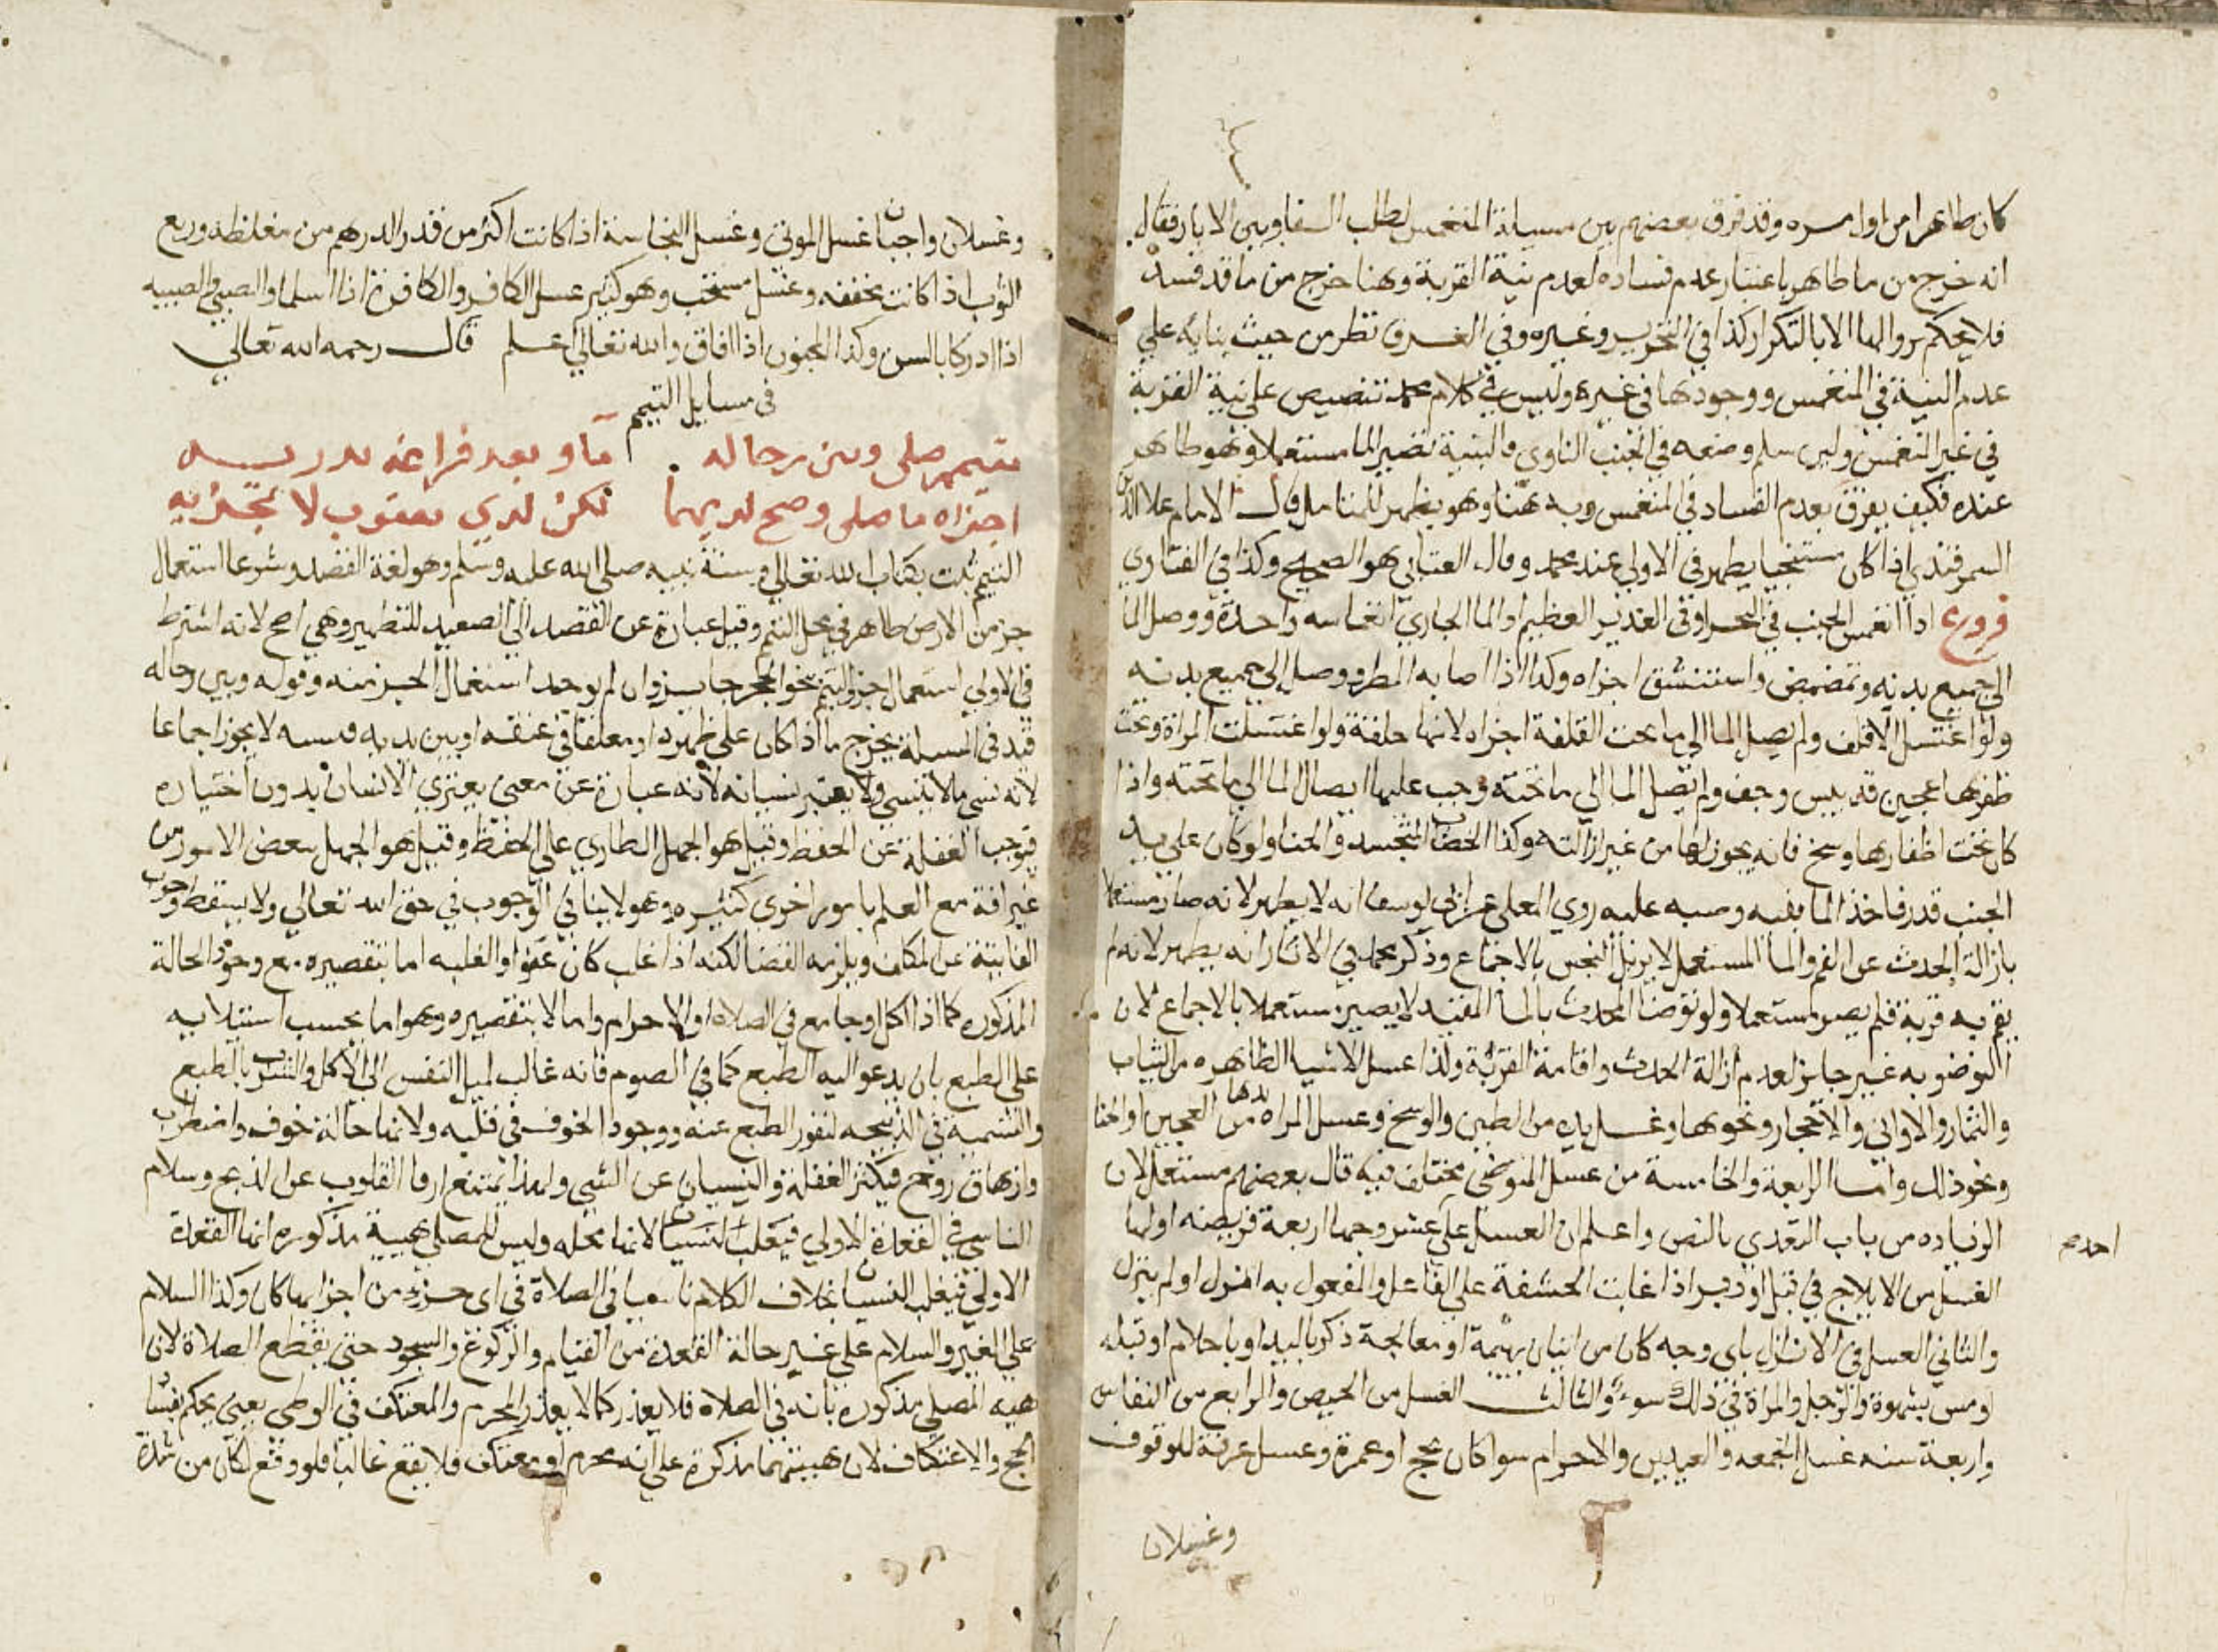 كان طاهرا من اول مره وقد فرق بعضهم بين مسيلة المنغمس لطلب الدلو وبين الابار فقال
انه خرج من ما طاهر باعتبار عدم فساده لعدم نية القربة وهنا خرج من ما قد فسد
فلا يحكم بزوالها الا بالتكرار كذا في التحرير وغيره وفي الفرق نظر من حيث بنايه علي
عدم النية في المنغمس ووجودها في غيره وليس في كلام محمد تنصيص علي نية القربة
في غير المنغمس ولين سلم وضعه في الجنب الناوي فالبنية تصير الما مستعملا وهو طاهر
عنده فكيف يفرق بعدم الفساد في المنغمس وبه هنا وهو يظهر للمتامل قال الامام علا الدين
السمرقندي اذا كان مستنجيا يطهر في الاولي عند محمد وقال العتابي هو الصحيح وكذا في الفتاوي
فروع اذا انغمس الجنب في البحر او في الغدير العظيم او الما الجاري انغماسه واحدة ووصل الما
الي جميع بدنه وتمضمض واستنشق اجزاه وكذا اذا اصابه المطر ووصل الي جميع بدنه
ولو اغتسل الاقلف ولم يصل الما الي ما تحت القلفة اجزاه لانها خلقة ولو اغتسلت المراة وتحت
ظفرها عجين قد يبس وجف ولم يصل الما الي ما تحته وجب عليها ايصال الما الي ما تحته واذا
كان تحت اظفارها وسخ فانه يجوز لها من غير ازالته وكذا الخضاب المتجسد والحنا ولو كان علي يد
الجنب قدر فاخذ الما بفيه وصبه عليه روي المعلي عن ابي يوسف انه لا يطهر لانه صار مستعملا
بازالة الحدث عن الفم والما المستعمل لا يزيل النجس بالاجماع وذكر محمد في الاثار انه يطهر لانه لم
يقم به قربة فلم يصر مستعملا ولو توضا المحدث بالما المقيد لا يصير مستعملا بالاجماع لان
التوضو به غير جايز لعدم ازالة الحدث واقامة القربة وكذا غسل الاشيا الطاهره من الثياب
والثمار والاواني والاحجار ونحوها وغسل يده من الطين والوسخ وغسل المراه يدها من العجين او الحنا
ونحو ذلك واما الرابعة والخامسة من غسل المتوضي مختلف فيه قال بعضهم مستعمل لان
الزياده من باب التعدي بالنص واعلم ان الغسل علي احد عشر وجها اربعة فريضه اولها
الغسل من الايلاج في قبل او دبر اذا غابت الحشفة علي الفاعل والمفعول به انزل او لم ينزل
والثاني الغسل في الانزال باي وجه كان من اتيان بهيمة او معالجة ذكر باليد او باحلام او قبله
او مس بشهوة والرجل والمراة في ذلك سوء والثالث الغسل من الحيض والرابع من النفاس
واربعة سنه غسل الجمعه والعيدين والاحرام سوا كان بحج او عمرة وغسل عرفة للوقوف
وغسلان
وغسلان واجبان غسل الموتي وغسل النجاسة اذا كانت اكثر من قدر الدرهم من مغلظه وربع
الثوب اذا كانت مخففه وغسل مستحب وهو كثير غسل الكافر والكافرة اذا اسلما والصبي والصبيه
اذا ادركا بالسن وكذا المجنون اذا افاق والله تعالي اعلم قال رحمه الله تعالي
في مسايل التيمم
متيمم صلي وبين رحاله ما وبعد فراغه يدريه
اجزاه ما صلي وصح لديهما لكن لدي يعقوب لا تجزيه
التيمم ثبت بكتاب الله تعالي وسنة نبيه صلي الله عليه وسلم وهو لغة القصد وشرعا استعمال
جز من الارض طاهر في محل التيمم وقيل عبارة عن القصد الي الصعيد للتطهير وهي اصح لانه اشترط
في الاولي استعمال جز والتيمم بنحو الحجر جايز وان لم يوجد استعمال الجز منه وقوله وبين رحاله
قيد في المسيلة يخرج ما اذا كان علي ظهره او معلقا في عنقه او بين يديه فنسيه لا يجوز اجماعا
لانه نسي ما لا ينسي ولا يعتبر نسيانه لانه عبارة عن معني يعتري الانسان بدون اختياره
فيوجب الغفلة عن الحفظ وقيل هو الجهل الطاري علي الحفظ وقيل هو الجهل ببعض الامور من
غير افة مع العلم بامور اخري كثيره وهو لا ينافي الوجوب في حق الله تعالي ولا يسقط وجوب
الفايتة عن المكلف ويلزمه القضا لكنه اذا غلب كان عفوا والغلبه اما بتقصيره مع وجود الحالة
المذكوره كما اذا اكل او جامع في الصلاه او الاحرام واما لا بتقصيره وهو اما بحسب استيلايه
علي الطبع بان يدعو اليه الطبع كما في الصوم فانه غالب لميل النفس الي الاكل والشرب بالطبع
والتسمية في الذبيحه لنفور الطبع عنه ووجود الخوف في قلبه ولانها حالة خوف واضطراب
وازهاق روح فيكثر الغفلة والنسيان عن الشي ولهذا يمتنع ارقا القلوب عن الذبح وسلام
الناسي في القعدة الاولي فيغلب النسيان لانها محله وليس للمصلي هيية مذكوره انها القعدة
الاولي فيغلب النسيان بخلاف الكلام ناسيا في الصلاة في اي جزء من اجزايها كان وكذا السلام
علي الغير والسلام علي غير حالة القعدة من القيام والركوع والسجود حتي يقطع الصلاة لان
هييه المصلي مذكوره بانه في الصلاه فلا يعذر كما لا يعذر المحرم والمعتكف في الوطي يعني يحكم بفساد
الحج والاعتكاف لان هييتهما مذكرة علي انه محرم او معتكف فلا يقع غالبا فلو وقع لكان من شدة